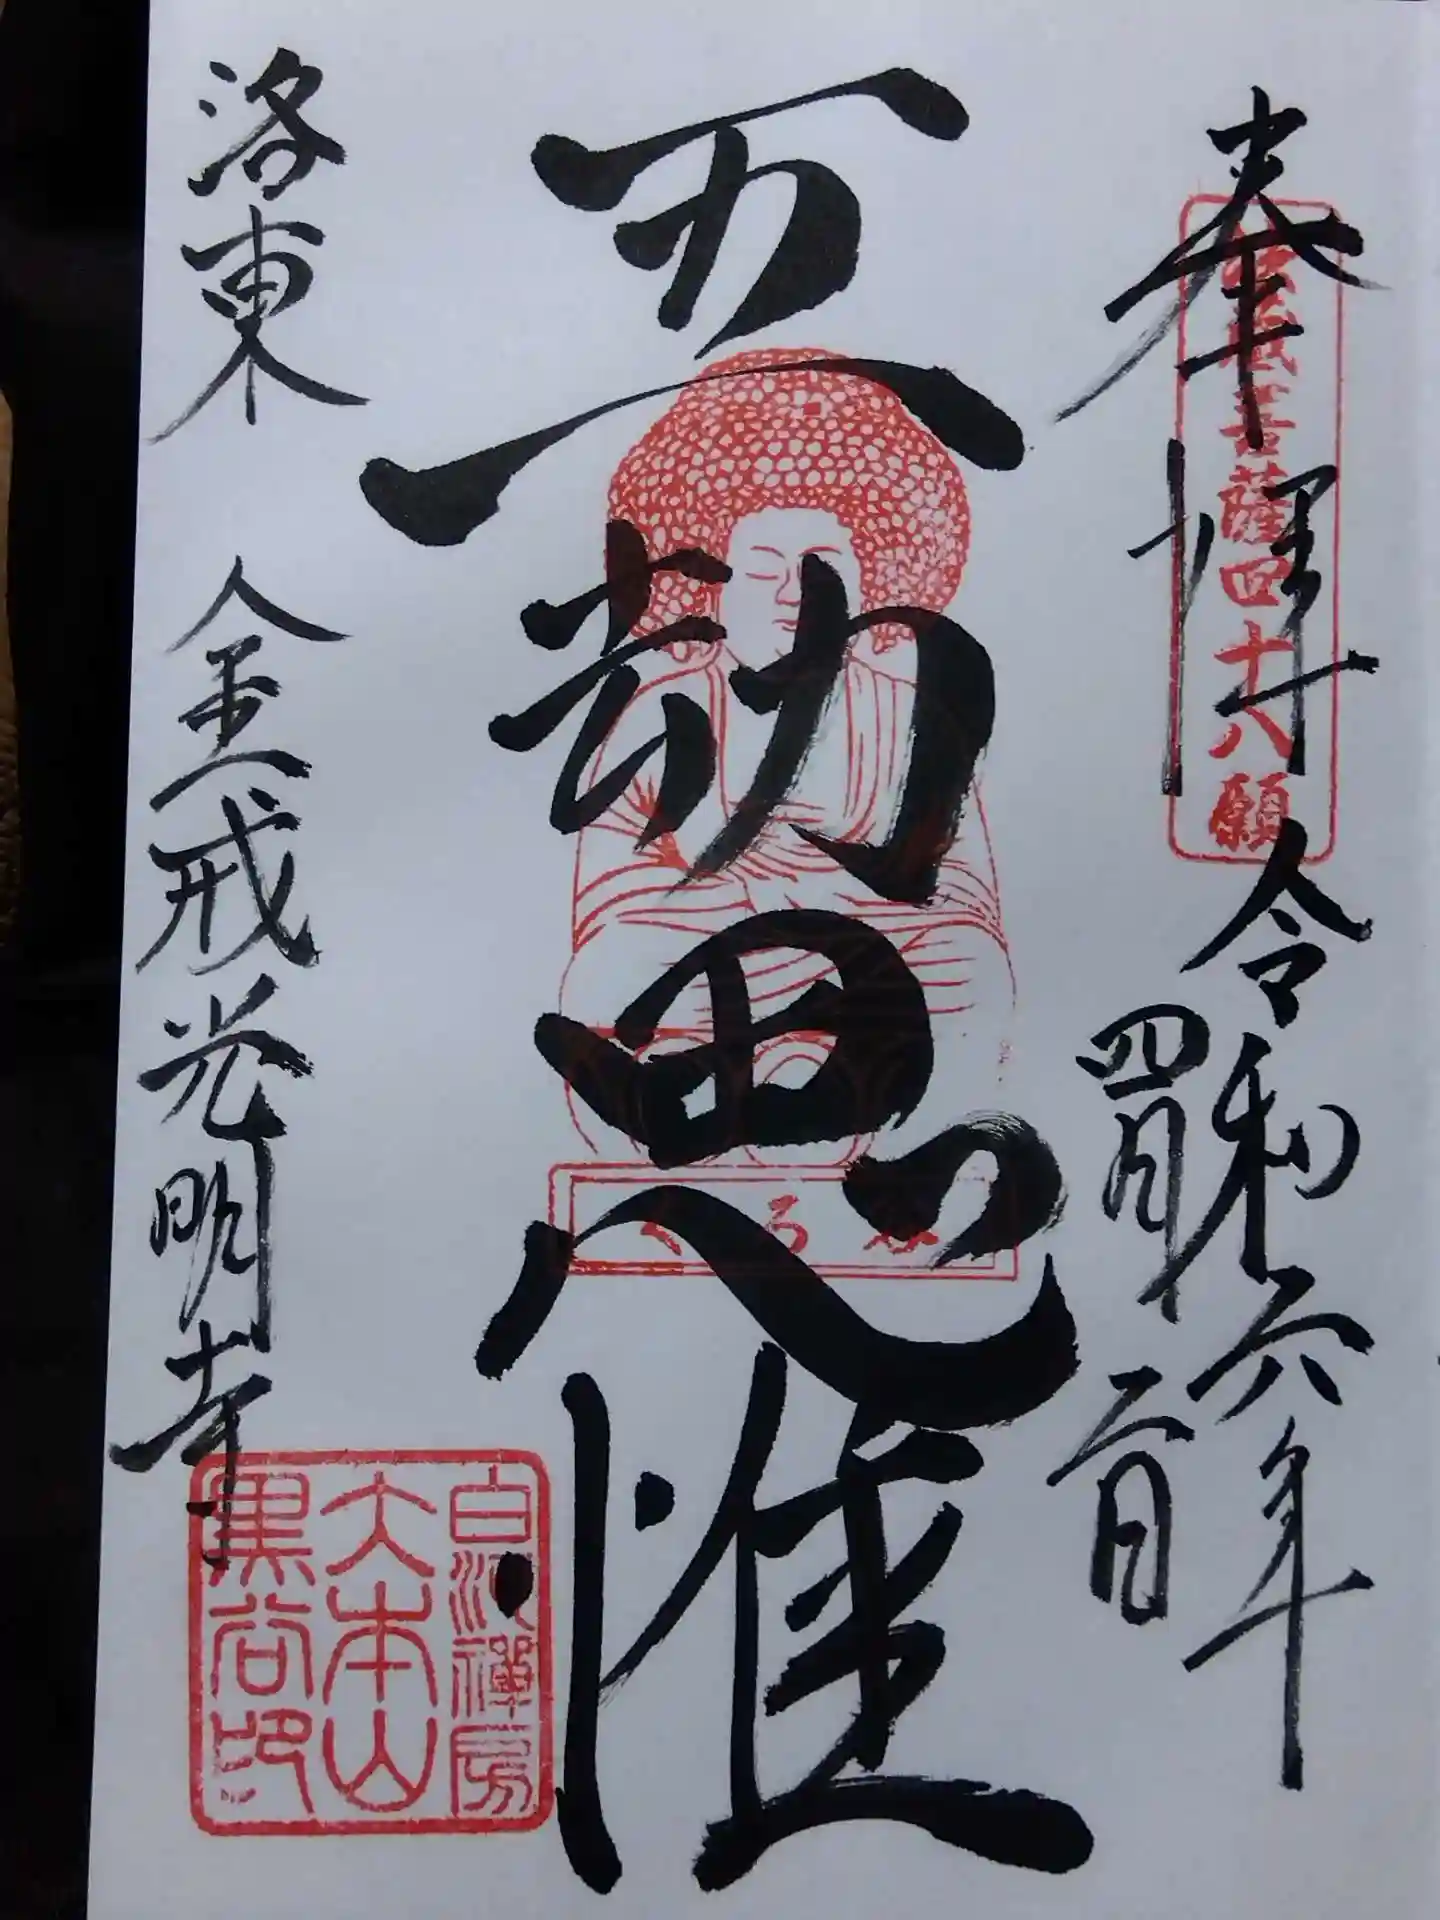 奉拝
法蔵菩薩四十八願
令和六年
四月二日
五劫思惟
くろ谷
洛東
金戒光明寺
白河禅房
大本山
黒谷印